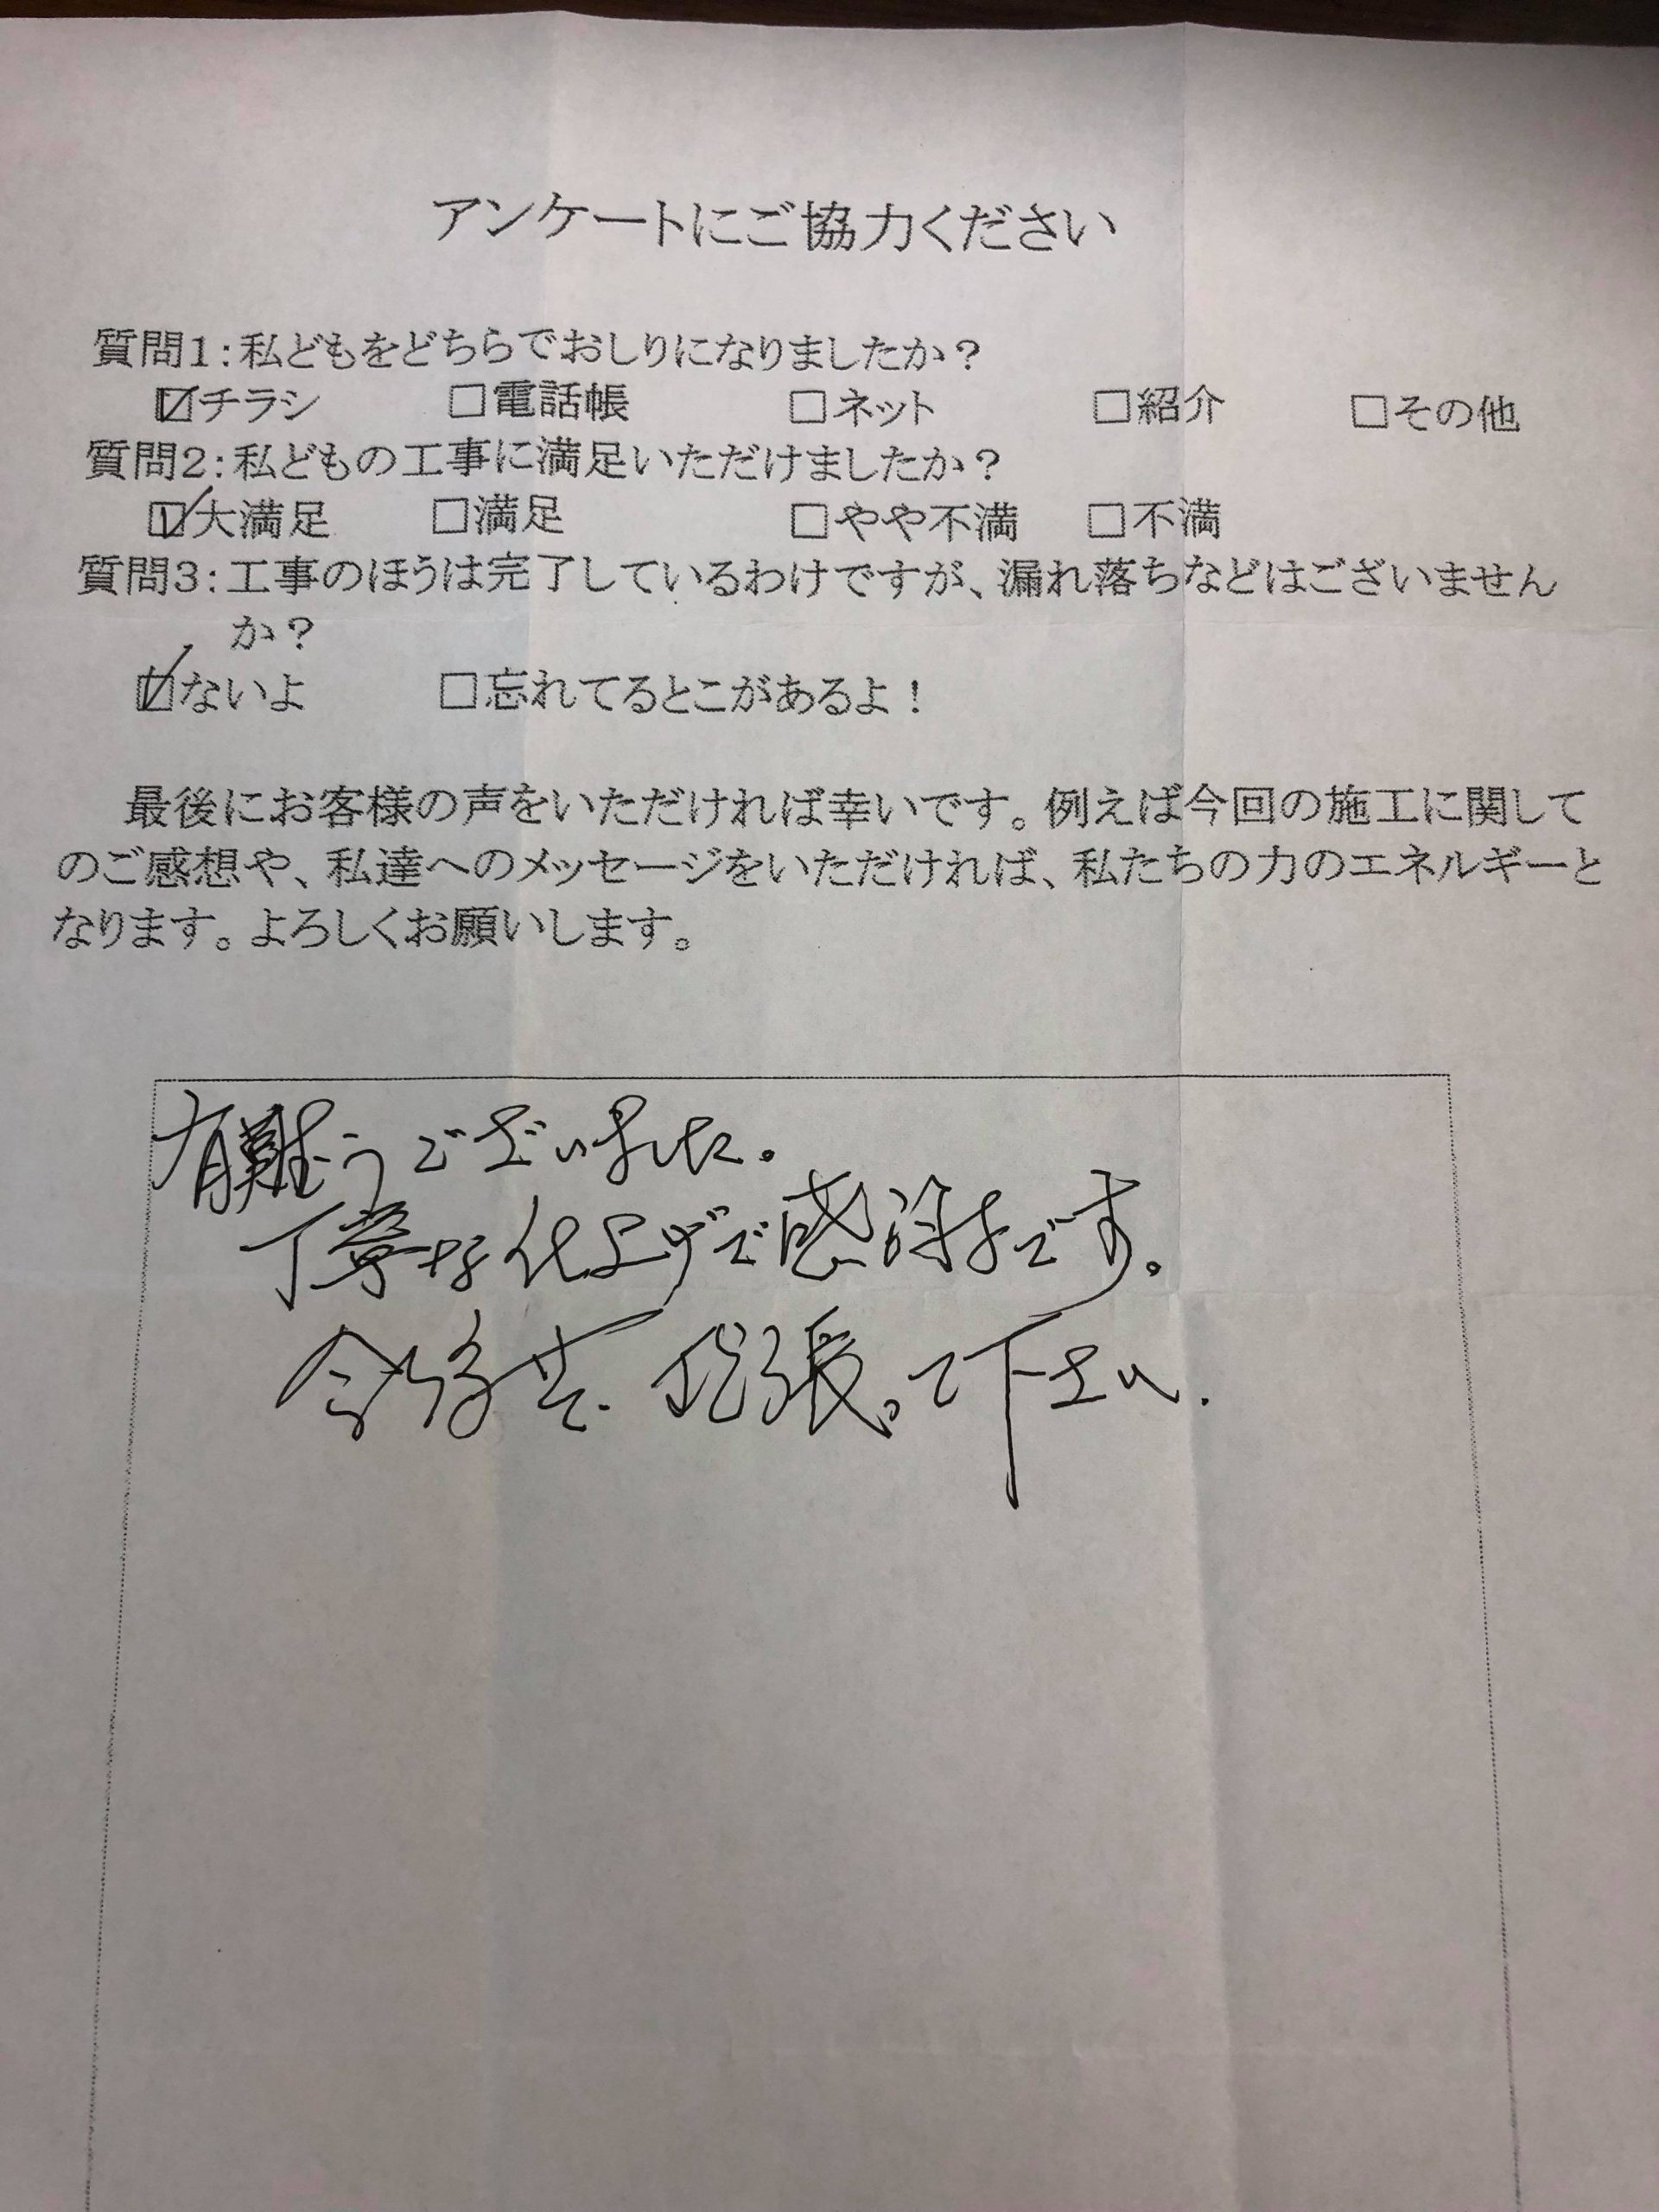 アンケートにご協力ください
質問1:私どもをどちらでおしりになりましたか?
☑チラシ □電話帳 □ネット □紹介 □その他
質問2:私どもの工事に満足いただけましたか?
☑大満足 □満足 □やや不満 □不満
質問3:工事のほうは完了しているわけですが、漏れ落ちなどはございません
か?
☑ないよ □忘れてるとこがあるよ!
最後にお客様の声をいただければ幸いです。例えば今回の施工に関して
のご感想や、私達へのメッセージをいただければ、私たちの力のエネルギーと
なります。よろしくお願いします。
有難うございました。
丁寧な仕上げで感謝です。
今後共、頑張って下さい.